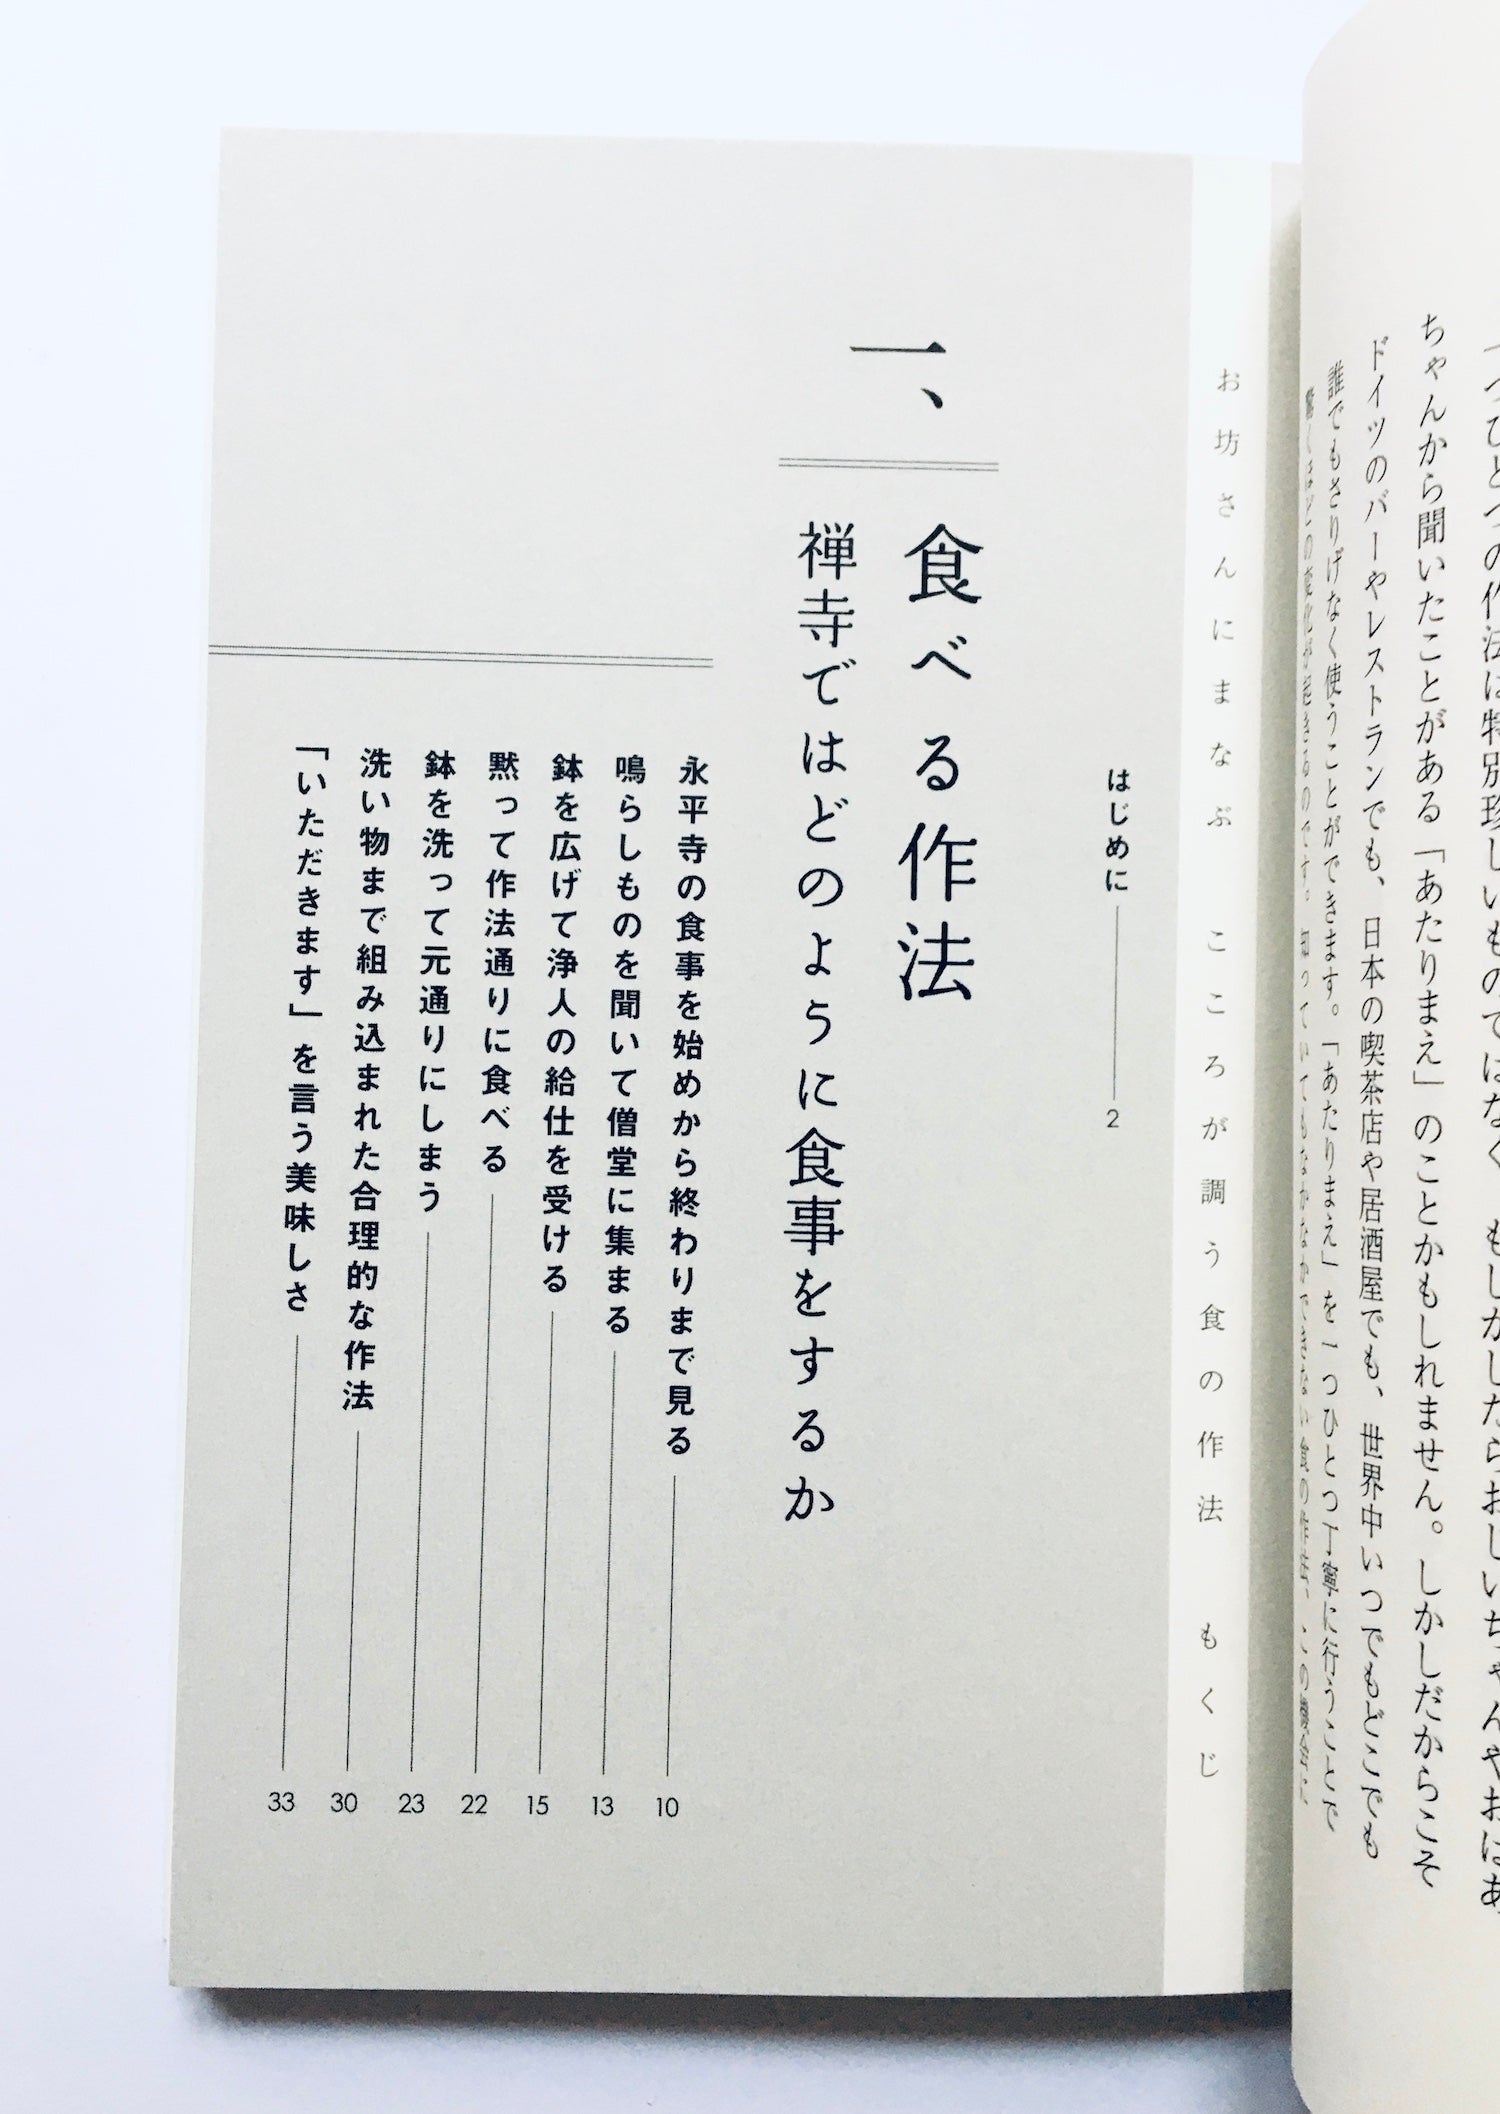 ちゃんから聞いたことがある「あたりまえ」のことかもしれません。しかしだからこそ
ドイツのバーやレストランでも、日本の喫茶店や居酒屋でも、世界中いつでもどこでも
誰でもさりげなく使うことができます。「あたりまえ」を一つひとつ丁寧に行うことで
驚くほどの変化が起きるのです。知っていてもなかなかできない食の作法、この機会に
お坊さんにまなぶ こころが調う食の作法 もくじ
はじめに 2
一、
食べる作法
禅寺ではどのように食事をするか
永平寺の食事を始めから終わりまで見る 10
鳴らしものを聞いて僧堂に集まる 13
鉢を広げて浄人の給仕を受ける 15
黙って作法通りに食べる 22
鉢を洗って元通りにしまう 23
洗い物まで組み込まれた合理的な作法 30
「いただきます」を言う美味しさ 33